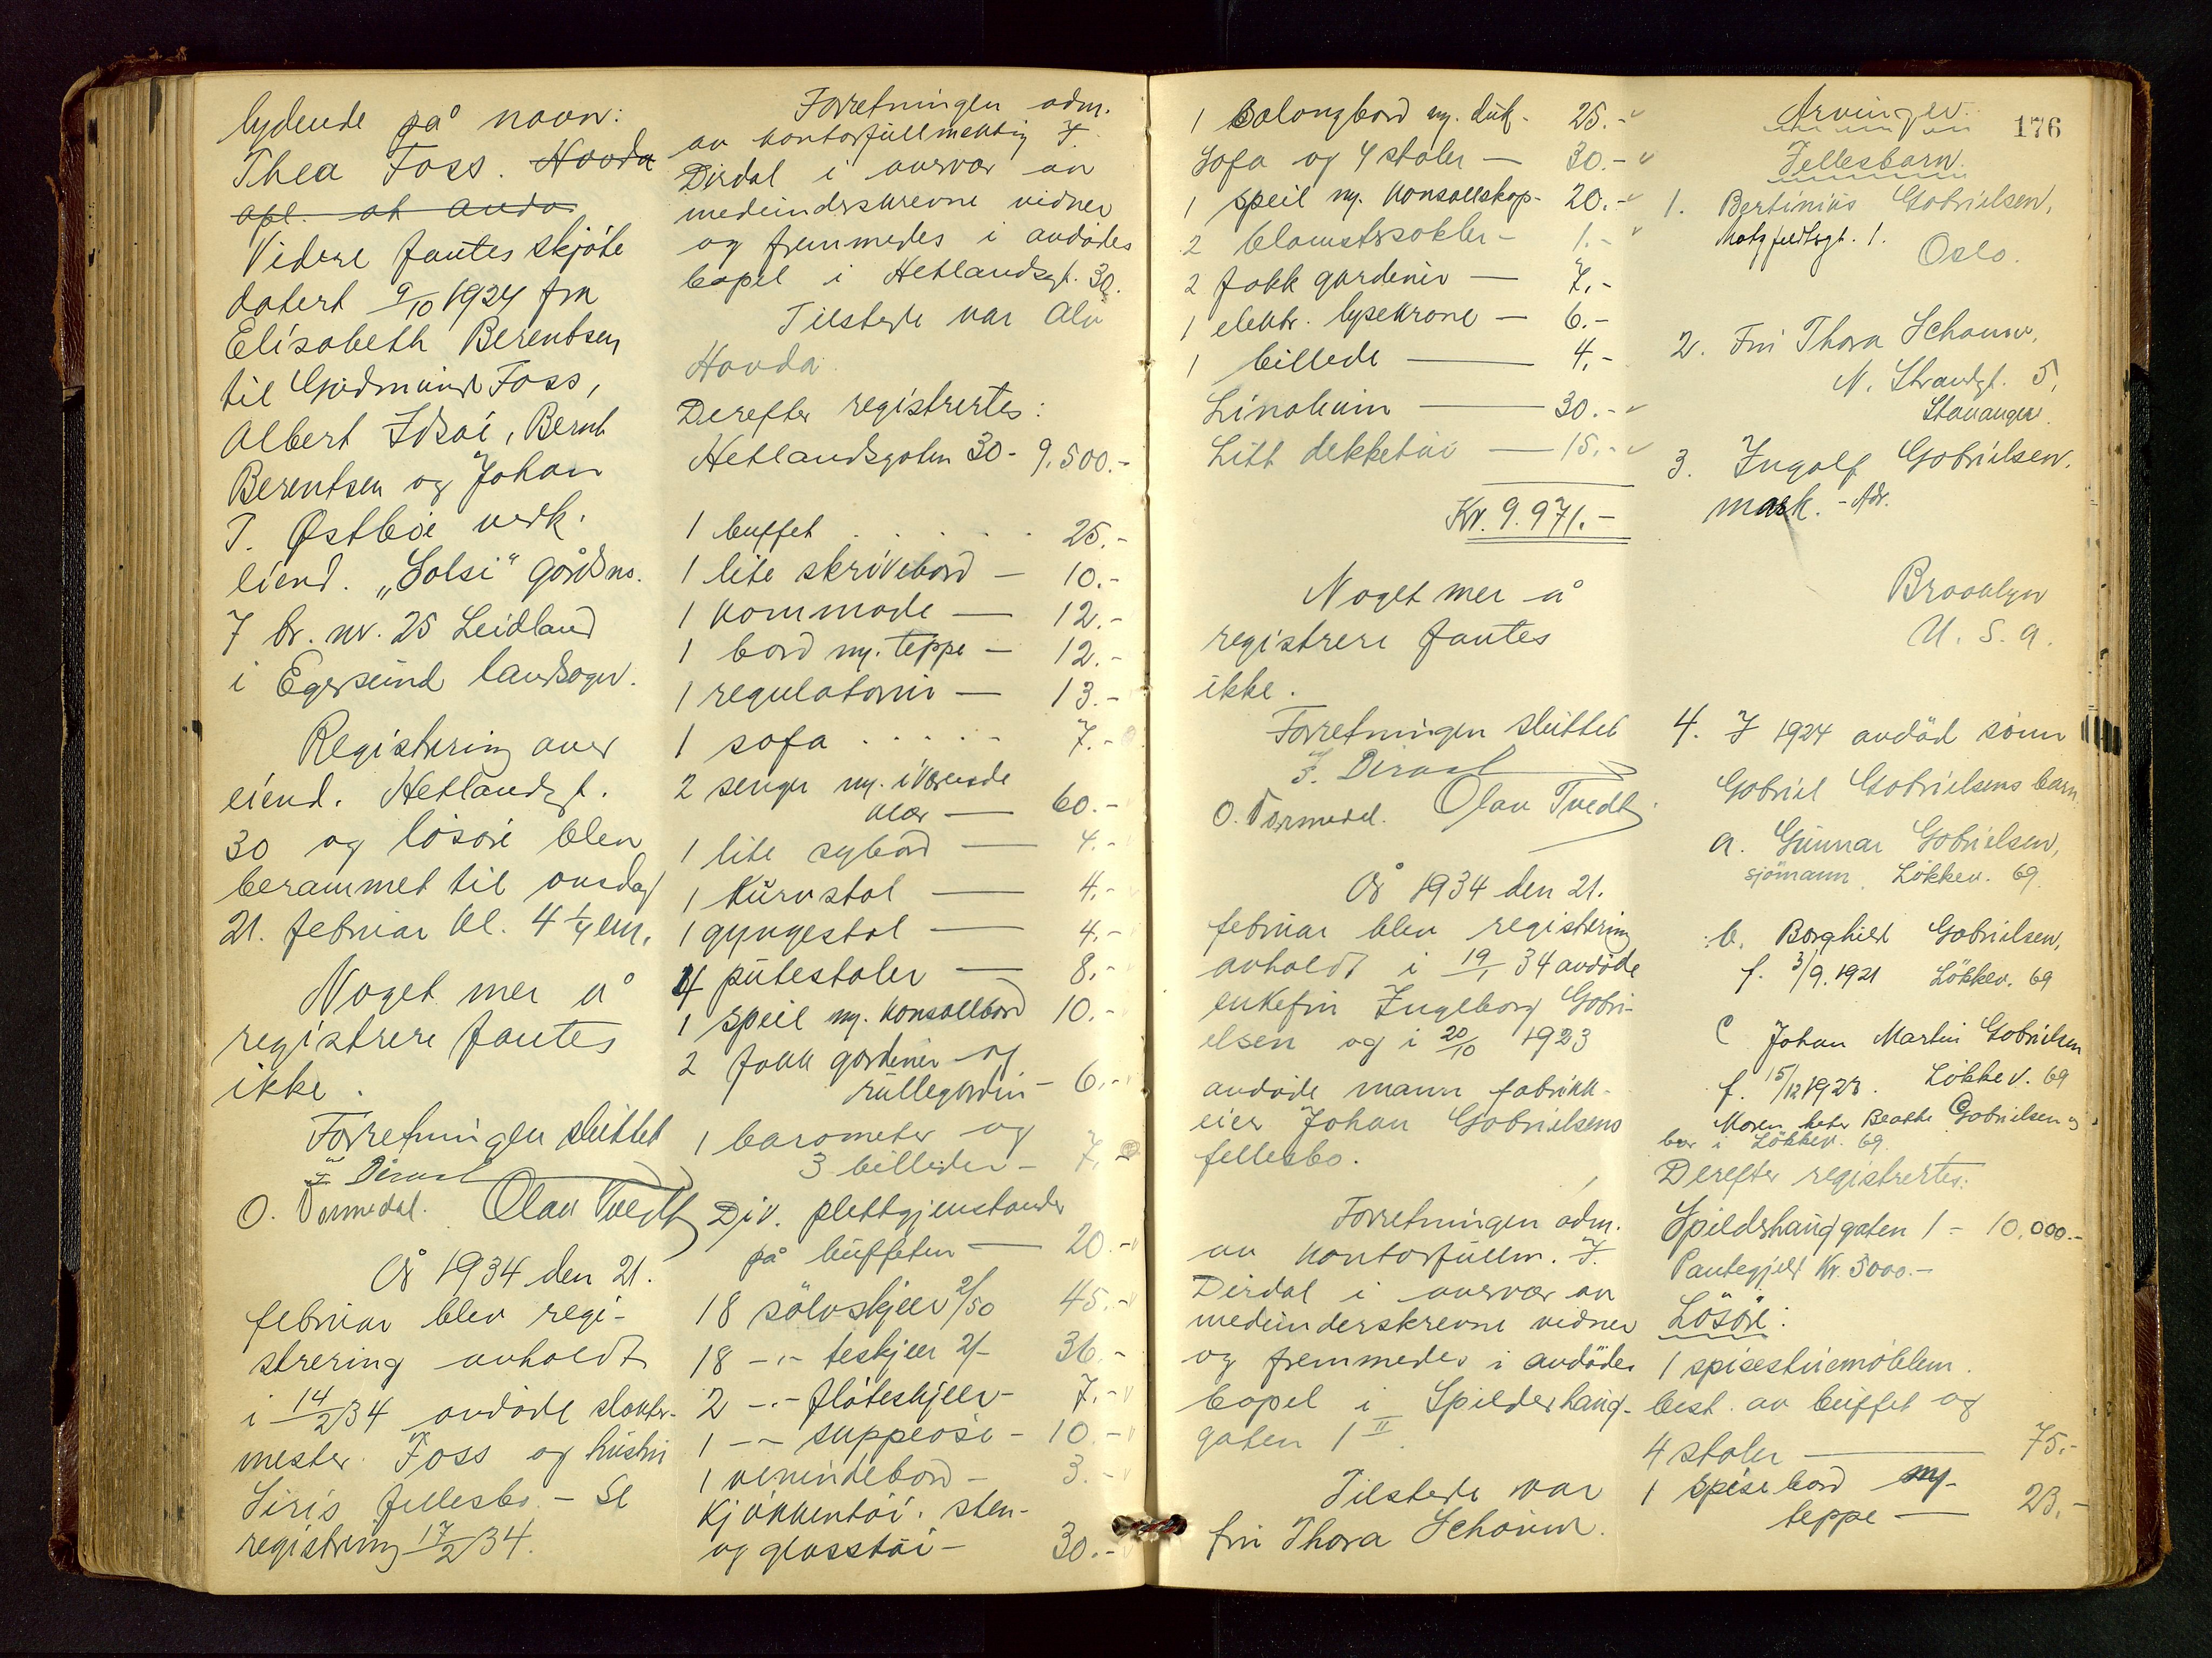 lydende på navn:
Thea Foss. Hovda
opl. at avdø
Videre fantes skjöte
datert 9/10 1924 fra
Elisabeth Berentsen
til Gudmund Foss,
Albert Idsøi, Bernt
Berentsen og Johan
T. Østbøe vedk.
eiend. „Solsi" gårdsno.
7 br. nr. 25 Leidland
i Egersund landsogn.
Registrering over
eiend. Hetlandsgt.
30 og lösöre blev
berammet til onsdag
21. februar kl. 4 1/4 em.
Noget mer å
registrere fantes
ikke.
Forretningen sluttet
F. Dirdal
O. Tormedal. Olav Tvedt
År 1934 den 21.
februar blev regi-
strering avholdt
i 14/2 34 avdöde slakter-
mester Foss og hustru
Siris fellesbo. – Se
registrering 17/2 34.
Forretningen adm.
av kontorfullmektig F.
Dirdal i overvær av
medunderskrevne vidner
og fremmedes i avdödes
bopel i Hetlandsgt. 30.
Tilstede var Alv
Hovda.
Derefter registrertes:
Hetlandsgaten 30 - 9.500.-
1 buffet . . . . 25.-
1 lite skrivebord — 10.-
1 kommode — 12.-
1 bord m. teppe — 12.-
1 regulatorur — 13.-
1 sofa . . . . . 7.-
2 senger m. iværende
klær — 60.-
1 lite sybord — 4.-
1 kurvstol — 4.-
1 gyngestol — 4.-
4 putestoler — 8.-
1 speil m. konsollbord 10.-
2 fakk gardener og
rullegardin – 6.-
1 barometer og
3 billeder – 7.-
Div. plettgjenstander
på buffeten — 20.-
18 sölvskjeer 2/50 45.-
18 -"- teskjeer 2/- 36.-
2 -"- flöteskjeer - 7.-
1 -"- suppeöse - 10.-
1 venindebord – 3.-
Kjökkentöi, sten-
og glasstöi – 30.-
1 Salongbord m. duk - 25.-
Sofa og 4 stoler — 30.-
1 speil m. konsollskap - 20.-
2 blomstersokler – 1.-
2 fakk gardener — 7.-
1 elektr. lysekrone — 6.-
1 billede — 4.-
Linoleum — 30.-
Litt dekketöi — 15.-
Kr. 9.971.-
Noget mer å
registrere fantes
ikke.
Forretningen sluttet
F. Dirdal
O. Tormedal. Olav Tvedt
År 1934 den 21.
februar blev registrering
avholdt i 19/1 34 avdöde
enkefru Ingeborg Gabri-
elsen og i 20/10 1923
avdöde mann fabrikk-
eier Johan Gabrielsens
fellesbo.
Forretningen adm.
av kontorfullm. F.
Dirdal i overvær av
medunderskrevne vidner
og fremmedes i avdödes
bopel i Spilderhaug-
gaten 1 II.
Tilstede var
fru Thora Schouw.
176
Arvinger.
Fellesbarn.
1. Bertinius Gabrielsen,
Motzfeldtsgt. 1.
Oslo.
2. Fru Thora Schouw,
N. Strandgt. 5,
Stavanger.
3. Ingolf Gabrielsen.
mark. - Adr.
Brooklyn
U. S. A.
4. I 1924 avdöd sönn
Gabriel Gabrielsens barn
a. Gunnar Gabrielsen,
sjömann. Lökkev. 69
b. Borghild Gabrielsen,
f. 3/9.1921 Lökkev. 69
c Johan Martin Gabrielsen
f. 15/12 1923. Lökkev. 69
Moren heter Beathe Gabrielsen og
bor i Lökkev. 69
Derefter registrertes:
Spilderhauggaten 1 - 10,000.-
Pantegjeld Kr. 3000.-
Lösöre:
1 spisestuemöblem.
best. av buffet og
4 stoler — 75.-
1 spisebord m.
teppe — 23.-